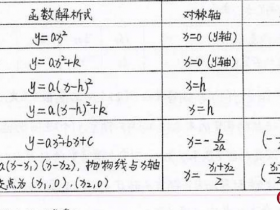 函数解析式 对称轴
y=ax² x=0 (y轴)
y=ax²+k x=0 (y轴)
y=a(x-h)² x=h
y=a(x-h)²+k x=h
y=ax²+bx+c x=-b/2a (-
a(x-x₁)(x-x₂), 抛物线与x轴 x=(x₁+x₂)/2 (x₁
交点为(x₁,0),(x₂,0)